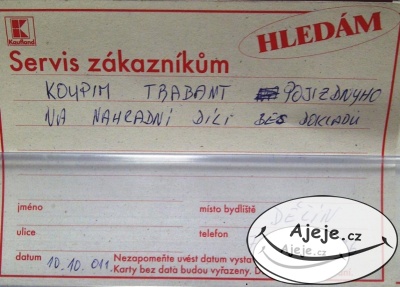 K
Kaufland
HLEDÁM
Servis zákazníkům
KOUPIM TRABANT POJIZDNYHO
NA NAHRADNÍ DÍLI BES DOKLADŮ
jméno
místo bydliště DĚČÍN
ulice
telefon
datum 10.10.011.
Nezapomeňte uvést datum vysta
Karty bez data budou vyřazeny. D
Ajeje.cz
Ajeje.cz